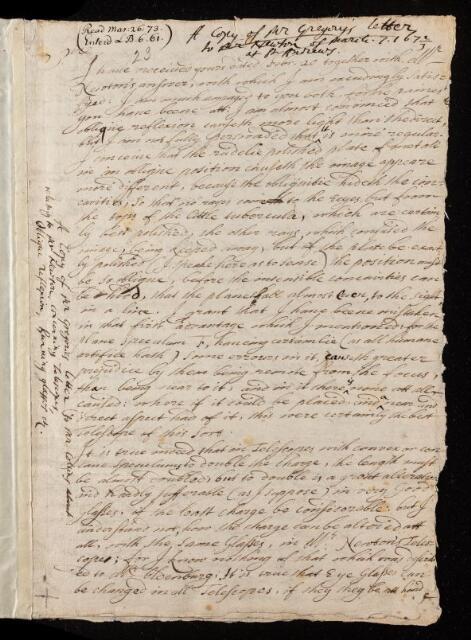 (Read Mar. 26. 73.
Enter'd L.B. 6. 61.)
A Copy of Mr Gregory's letter
to Mr Newton of March. 7. 1672/3
at St Andrews.
23
I have received yours together with Mr
Newtons answer, with which I am exceedingly satis
fyed. I am much to you both for the paines
you have beene att. I am almost convinced that
oblique reflexion more light than the direct,
but I am not fully perswaded that it is more regular.
I conceive that the polished plate of metall
in an oblique position causeth the image appeare
more different, because the obliquitie hideth the con-
cavities; So that no rays come to the eye, but from
the tops of the little tubercula, which are certain
ly best polished; the other rays, which confused the
image, being away, but if the plate be exact
ly polished (I speake here as to sense) the position must
be so oblique, before the insensible concavities can
be, that the plane shall almost, to the sight
in a line. I grant that I have beene mistaken
in that first advantage which I mentioned; for the
plane speculum (having certainlie (as all humane
artifice hath) some errours in it, the greater
prejudice by them being remote from the focus
than being near to it, and in it there's some att all
: where if it could be placed, and
direct aspect had of it, this were certainly the best
telescope of this sort.
It is true indeed, that in Telescopes with convex or con
cave speculums to double the charge, the length must
be almost doubled, but to double is a great alteration
and hardly sufferable (as I suppose) in very good
glasses, if the first charge be considerable. but I
understand not, how the charge can be altered att
all, with the same Glasses, in Mr Newtons Teles
copes; for I know nothing of that what was
to Mr Oldenburg. It is true that Eye Glasses can
be changed in all Telescopes, if they be
A Copy of Mr Gregories letter to Mr Collins about
relating to Mr Newton, concerning Telescopes,
Oblique reflexion, burning glasses etc.